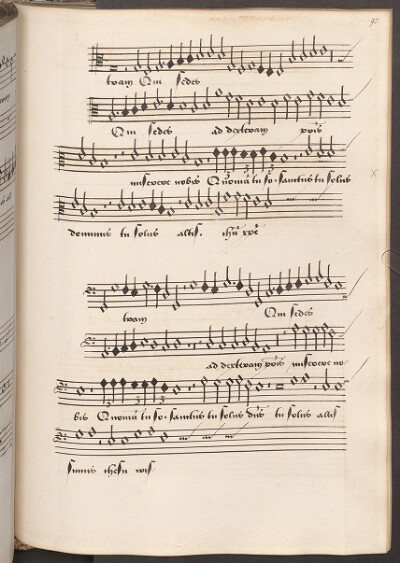 tram Qui sedes
Qui sedes ad dexteram pris
miserere nobis Quoniā tu so. sanctus tu solus
dominus tu solus altis. ihū xpē
tram Qui sedes
ad dexteram pris miserere no
bis Quoniā tu so. sanctus tu solus dūs tu solus altis
simus ihesu